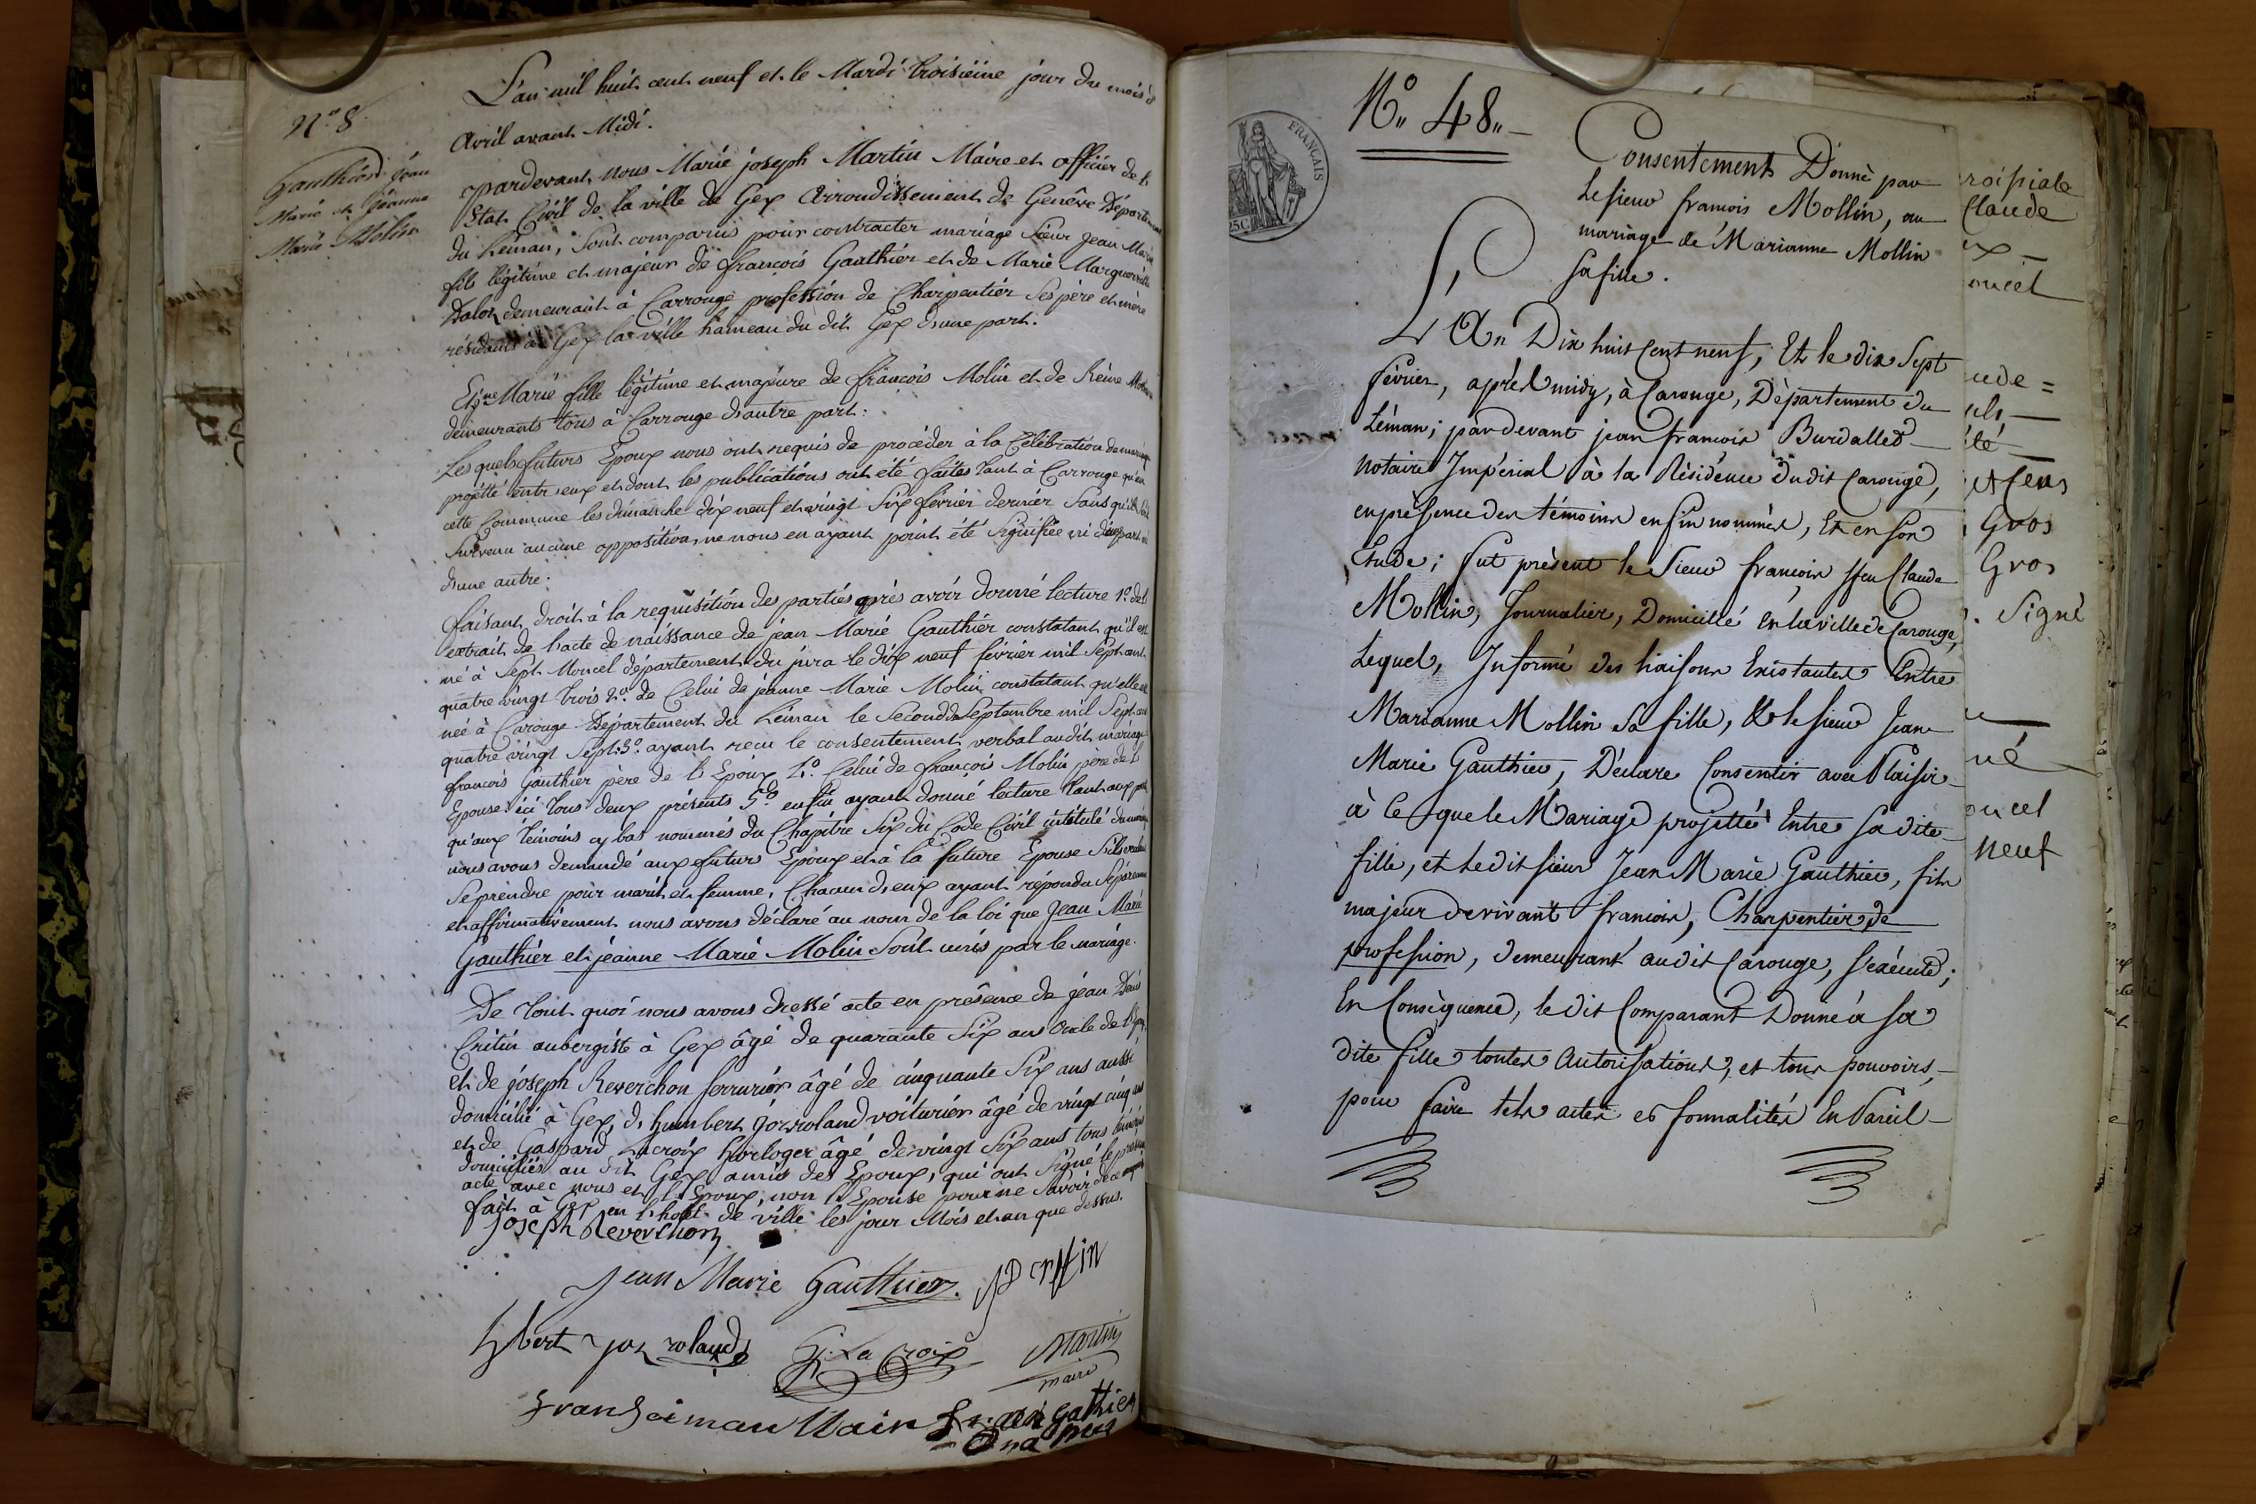 N.º 8.
Gauthier jean
Marie et jéanne
Marie Molin
L'an mil huit cent neuf et le Mardi troisième jour du mois d'
Avril avant Midi.
pardevant nous Marie joseph Martin Maire et officier de l'
Etat Civil de la ville de Gex Arrondissement de Genève Département
du Léman, Sont comparus pour contracter mariage Sieur Jean Marie
fils légitime et majeur de françois Gauthier et de Marie Marguerite
Daloz demeurant à Carrouge profession de Charpentier Ses père et mère
résidants à Gex la ville hameau du dit Gex d'une part.
Et jne Marie fille légitime et majeure de françois Molin et de Reine
demeurants tous à Carrouge d'autre part:
Les quels futurs Epoux nous ont requis de procéder à la Célébration de mariage
projetté entr'eux et dont les publications ont été faites tant à Carrouge qu'en
cette Commune les dimanche dix neuf et vingt Six février dernier Sans qu'il soit
Survenu aucune opposition, ne nous en ayant point été Signifiée ni d'une part ni
d'une autre.
faisant droit à la requisition des parties après avoir donné lecture 1º. de l'
extrait de l'acte de naissance de jean Marie Gauthier constatant qu'il est
né à Sept Moncel département du jura le dix neuf février mil Sept cent
quatre vingt trois 2º. de Celui de jéanne Marie Molin constatant qu'elle est
née à Carouge Département du Léman le Second de Septembre mil Sept cent
quatre vingt Sept. 3º. ayant reçu le consentement verbal audit mariage
françois Gauthier père de l'Epoux 4º. Celui de françois Molin père de l'
Epouse ici tous deux présents 5º. enfin ayant donné lecture tant aux parties
qu'aux témoins cy bas nommés du Chapitre Six du Code Civil intitulé du mariage
nous avons demandé aux futur Epoux et à la future Epouse S'ils veulent
Se prendre pour mari et femme, Chacun d'eux ayant répondu Séparément
et affirmativement nous avons déclaré au nom de la loi que Jean Marie
Gauthier et jéanne Marie Molin Sont unis par le mariage.
De tout quoi nous avons dressé acte en présence de jean Denis
Cretin aubergiste à Gex âgé de quarante Six ans oncle de l'Epoux
et de joseph Reverchon Serrurier âgé de cinquante Six ans aussi
domicilié à Gex, d'humbert jozroland voiturier âgé de vingt cinq ans
et de Gaspard Lacroix horloger âgé de vingt Six ans tous témoins
domiciliés au dit Gex amis des Epoux, qui ont Signé le présent
acte avec nous et l'Epoux, non l'Epouse pour ne Savoir de ce enquis
fait à Gex en l'hotel de ville les jour Mois et an que dessus.
Joseph Reverchon
Jean Marie Gauthier.
hbert joz roland
G: La Croix
Martin
maire
N.º 48.
FRANÇAIS
25C
Consentement Donné par
Le sieur francois Mollin, au
mariage de Marianne Mollin
Sa fille.
L'An Dix huit Cent neuf, Et le dix Sept
février, après midy, à Carouge, Département du
Léman; pardevant jean francois Burdallet
notaire Impérial à la Résidence dudit Carouge,
en présence des témoins en fin nommés, Et en son
Etude; fut présent le Sieur francois ffeu Claude
Mollin, Journalier, Domicilié en la ville de Carouge,
Lequel, Informé des liaisons Existantes Entre
Marianne Mollin Sa fille, & le sieur Jean
Marie Gauthier, Déclare Consentir avec Plaisir
à Ce que le Mariage projetté Entre sa dite
fille, et ledit sieur Jean Marie Gauthier, fils
majeur de vivant francois, Charpentier de
profession, demeurant audit Carouge, s'exécute;
En Conséquence, le dit Comparant Donne à sa
dite fille toutes Autorisations, et tous pouvoirs,
pour faire tels actes et formalités En Pareil
Claude
Gros
Gros
Signé
neuf